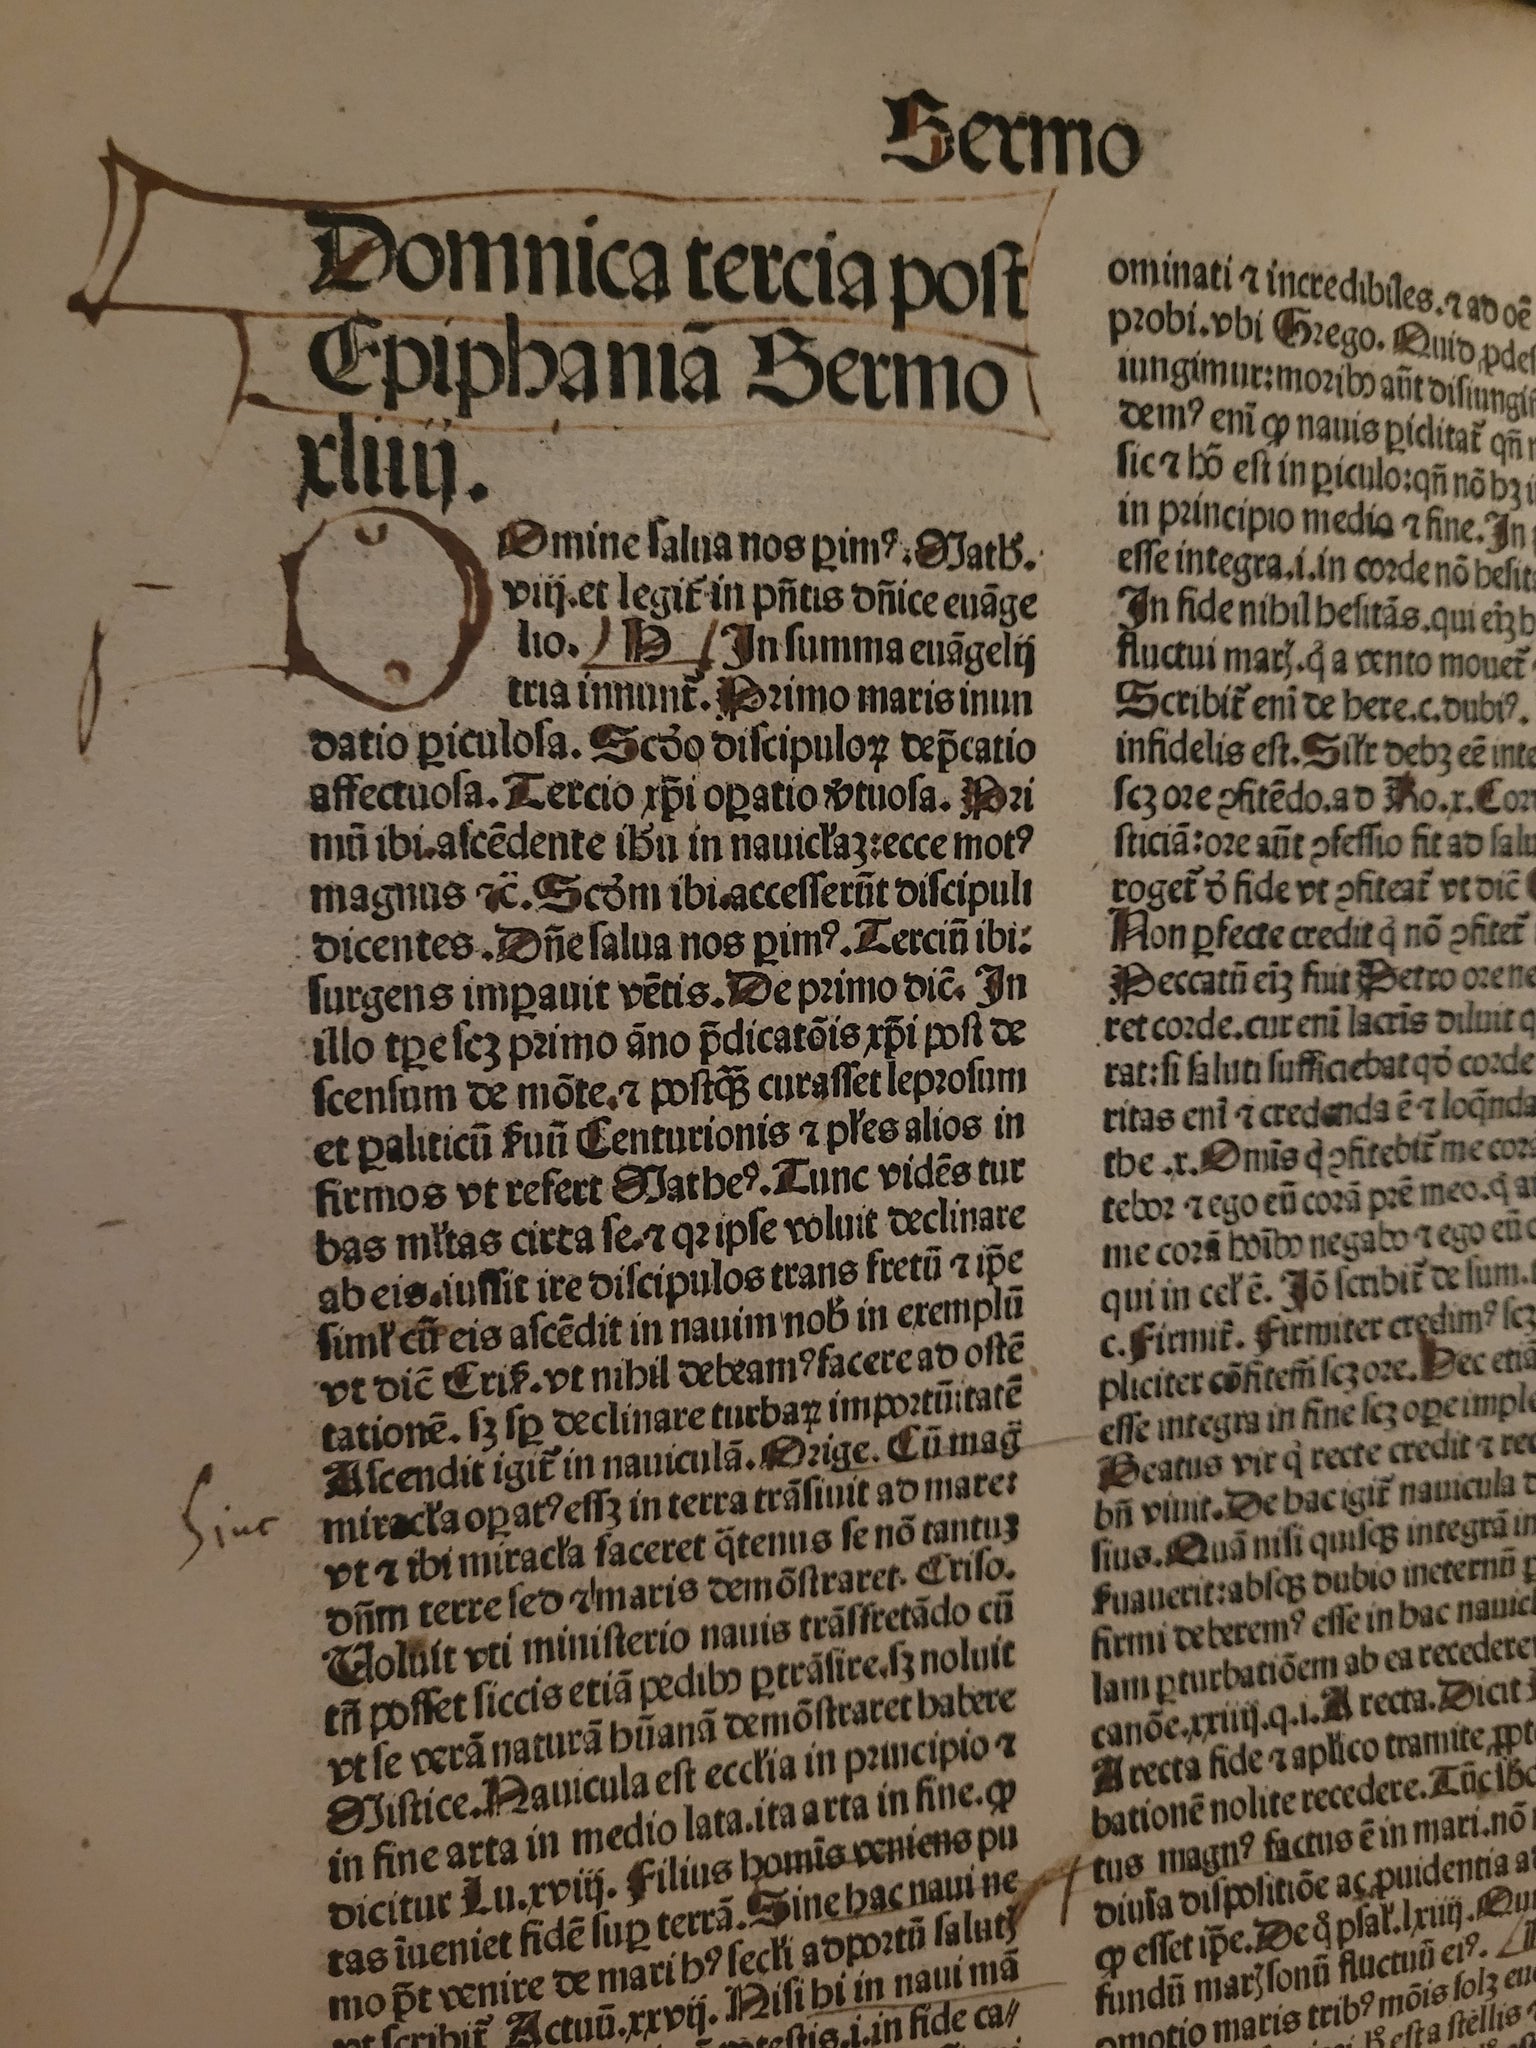 Sermo
Domnica tercia post
Epiphaniā Sermo
xliiij.
Omine salua nos ꝑimꝰ. Math.
viij. et legit᷑ in pn̄tis dn̄ice euāge
lio. H In summa euāgelij
tria innunt᷑. Primo maris inun
datio ꝑiculosa. Scd̓o discipuloꝝ dep̄catio
affectuosa. Tercio xp̄i oꝑatio v̓tuosa. Pri
mū ibi. ascēdente ih̓u in nauicl̓aꝫ: ecce motꝰ
magnus ⁊c̄. Scd̓m ibi. accesserūt discipuli
dicentes. Dn̄e salua nos ꝑimꝰ. Terciū ibi:
surgens imꝑauit vētis. De primo dic̄. In
illo tꝑe scꝫ primo āno p̄dicatōis xp̄i post de
scensum de mōte. ⁊ postꝙ̄ curasset leprosum
et ꝑaliticū ẜuū Centurionis ⁊ pl̓es alios in
firmos vt refert Matheꝰ. Tunc vidēs tur
bas ml̓tas circa se. ⁊ qꝛ ipse voluit declinare
ab eis. iussit ire discipulos trans fretū ⁊ ip̄e
siml̓ cū eis ascēdit in nauim nob̓ in exemplū
vt dic̄ Criẜ. vt nihil debeamꝰ facere ad ostē
tationē. sꝫ sꝑ declinare turbaꝝ importūitatē
Ascendit igit᷑ in nauiculā. Orige. Cū mag̈
miracl̓a oꝑatꝰ essꝫ in terra trāsiuit ad mare:
Sine
vt ⁊ ibi miracl̓a faceret q̄tenus se nō tantuꝫ
dn̄m terre sed ⁊ maris demōstraret. Criso.
Uoluit vti ministerio nauis trāsfretādo cū
tn̄ posset siccis etiā pedibꝰ ꝑtrāsire. sꝫ noluit
vt se verā naturā hūanā demōstraret habere
Mistice. Nauicula est eccl̓ia in principio ⁊
in fine arta in medio lata. ita arta in fine. ꝙ
dicitur Lu. xviij. Filius homīs veniens pu
tas īueniet fidē suꝑ terrā. Sine hac naui ne
mo p̄t venire de mari hꝰ secl̓i ad portū salutꝭ
vt scribit᷑ Actuū. xxvij. Nisi hi in naui mā
potestis. i. in fide ca
ominati ⁊ incredibiles. ⁊ ad oē
probi. vbi Grego. Quid ꝓdes
iungimur: moribꝰ aūt disiungi
demꝰ. enī ꝙ nauis ꝑiclitat᷑ qn̄
sic ⁊ hō est in ꝑiculo: qn̄ nō hꝫ
in principio medio ⁊ fine. In
esse integra. i. in corde nō hesit
In fide nihil hesitās. qui em̄
fluctui marꝭ. q̓ a vento mouet᷑
Scribit᷑ enī de here. c. dubiꝰ.
infidelis est. Sil̓r debꝫ eē inte
scꝫ ore ꝯfitēdo. ad Ro. x. Cor
sticiā: ore aūt ꝯfessio fit ad salu
roget᷑ d̓ fide vt ꝯfiteat᷑ vt dic̄
Non ꝑfecte credit q̓ nō ꝯfitet᷑
Peccatū em̄ fuit Petro ore ne
ret corde. cur enī lacrīs diluit
rat: si saluti sufficiebat qd̓ corde
ritas enī ⁊ credenda ē ⁊ loq̄nda
the. x. Omīs q̓ ꝯfitebit᷑ me cor
tebor ⁊ ego eū corā prē meo. q̓ a
me corā hoībꝰ negabo ⁊ ego eū
qui in cel̓ ē. Iō scribit᷑ de sum.
c. Firmit᷑. Firmiter credimꝰ scꝫ
pliciter cōfitem̄ scꝫ ore. Hec etiā
esse integra in fine scꝫ oꝑe imple
Beatus vir q̓ recte credit ⁊ rec
bn̄ viuit. De hac igit᷑ nauicula
sius. Quā nisi quisqꝫ integrā in
ẜuauerit: absqꝫ dubio ineternū
firmi deberemꝰ esse in hac nauic
lam ꝑturbatiōem ab ea recedere
canōe. xxiiij. q. i. A recta. Dicit
A recta fide ⁊ apl̓ico tramite ꝓpt
bationē nolite recedere. Tūc
tus magnꝰ factus ē in mari. nō
diuīa dispositiōe ac ꝓuidentia
ꝙ esset ip̄e. De q̊ psal̓. lxiiij. Qui
fundū marꝭ sonū fluctuū eiꝰ.
omotio maris tribꝰ mōis solꝫ eue
est a stellis